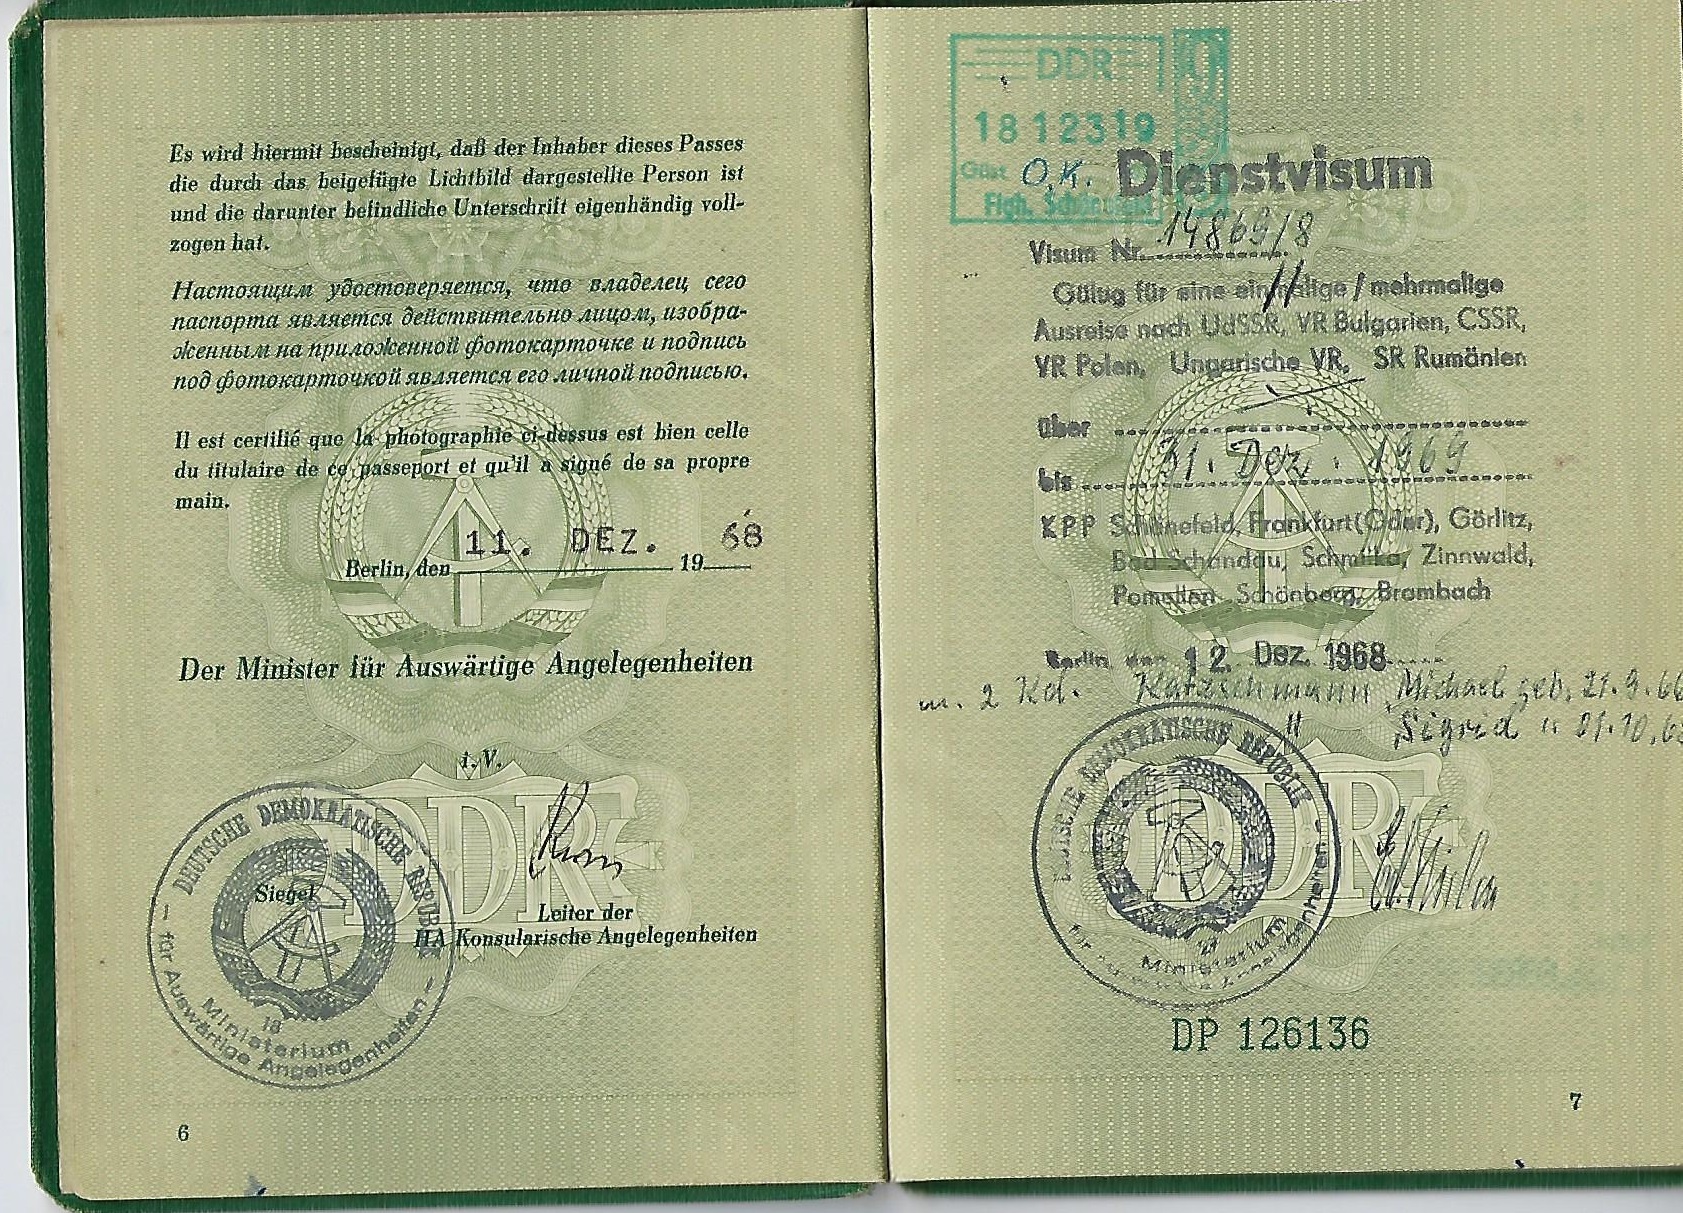 Es wird hiermit bescheinigt, daß der Inhaber dieses Passes
die durch das beigefügte Lichtbild dargestellte Person ist
und die darunter befindliche Unterschrift eigenhändig voll-
zogen hat.
Настоящим удостоверяется, что владелец сего
паспорта является действительно лицом, изобра-
женным на приложенной фотокарточке и подпись
под фотокарточкой является его личной подписью.
Il est certifié que la photographie ci-dessus est bien celle
du titulaire de ce passeport et qu'il a signé de sa propre
main.
Berlin, den 11. DEZ. 1968
Der Minister für Auswärtige Angelegenheiten
i.V.
DDR
DEUTSCHE DEMOKRATISCHE REPUBLIK
Siegel
18
Ministerium
für Auswärtige Angelegenheiten
Leiter der
HA Konsularische Angelegenheiten
6
DDR
18 12 23 19
O.K.
Dienstvisum
Visum Nr. 14869/8
Gültig für eine einmalige / mehrmalige
Ausreise nach UdSSR, VR Bulgarien, CSSR,
VR Polen, Ungarische VR, SR Rumänien
über
bis 31. Dez. 1969
KPP Schönefeld, Frankfurt(Oder), Görlitz,
Bad Schandau, Schmilka, Zinnwald,
Pomellen, Schönberg, Brambach
Berlin, den 12. Dez. 1968
m. 2 Kd. Michael geb. 21.9.66
" Sigrid " 01.10.
DEUTSCHE DEMOKRATISCHE REPUBLIK
Ministerium
für Auswärtige Angelegenheiten
DDR
DP 126136
7